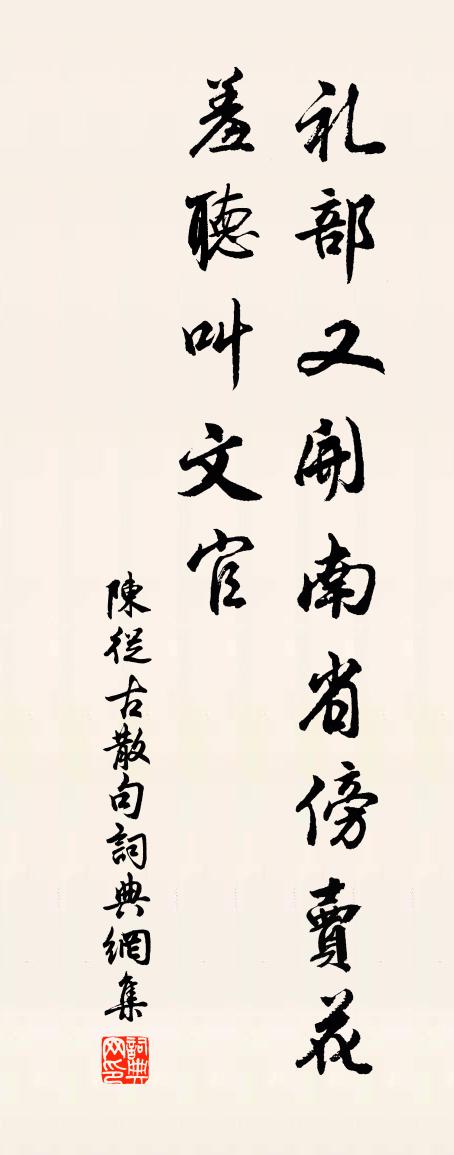 礼部又開南省傍賣花
羞聽叫文官
陳從古散句詞典網集
詞典网印